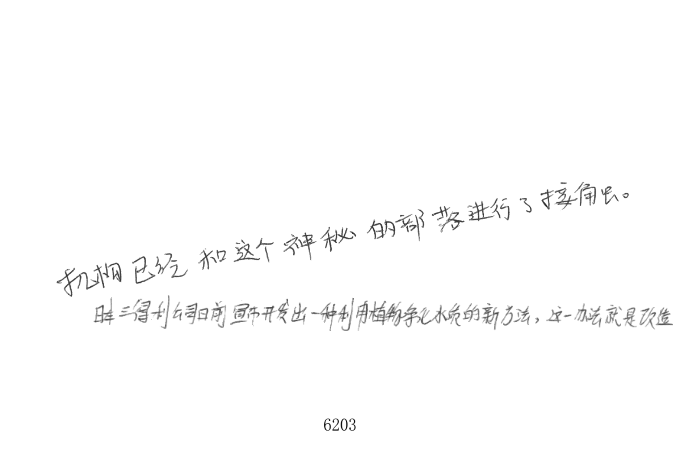 机构已经和这个神秘的部落进行了接触。
日本三得利公司日前宣布开发出一种利用植物净化水质的新方法，这一办法就是改造
6203